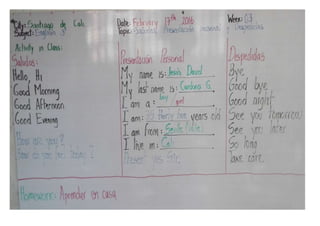 City: Santiago de Cali
Date: February 17th 2016
Week: 03
Subject: English 3°
Topic: Saludos, Presentación Personal y Despedidas
Activity in Class:
Saludos:
Hello, Hi
Good Morning
Good Afternoon
Good Evening
How are you?
How do you feel today?
Presentación Personal
My name is: Jesús David
My last name is: Cardona G.
I am a: boy girl
I am: years old
I am from:
I live in: Cali
Despedidas
Bye
Good bye
Good night
See you tomorrow
See you later
So long
Take care
Homework: Aprender en casa